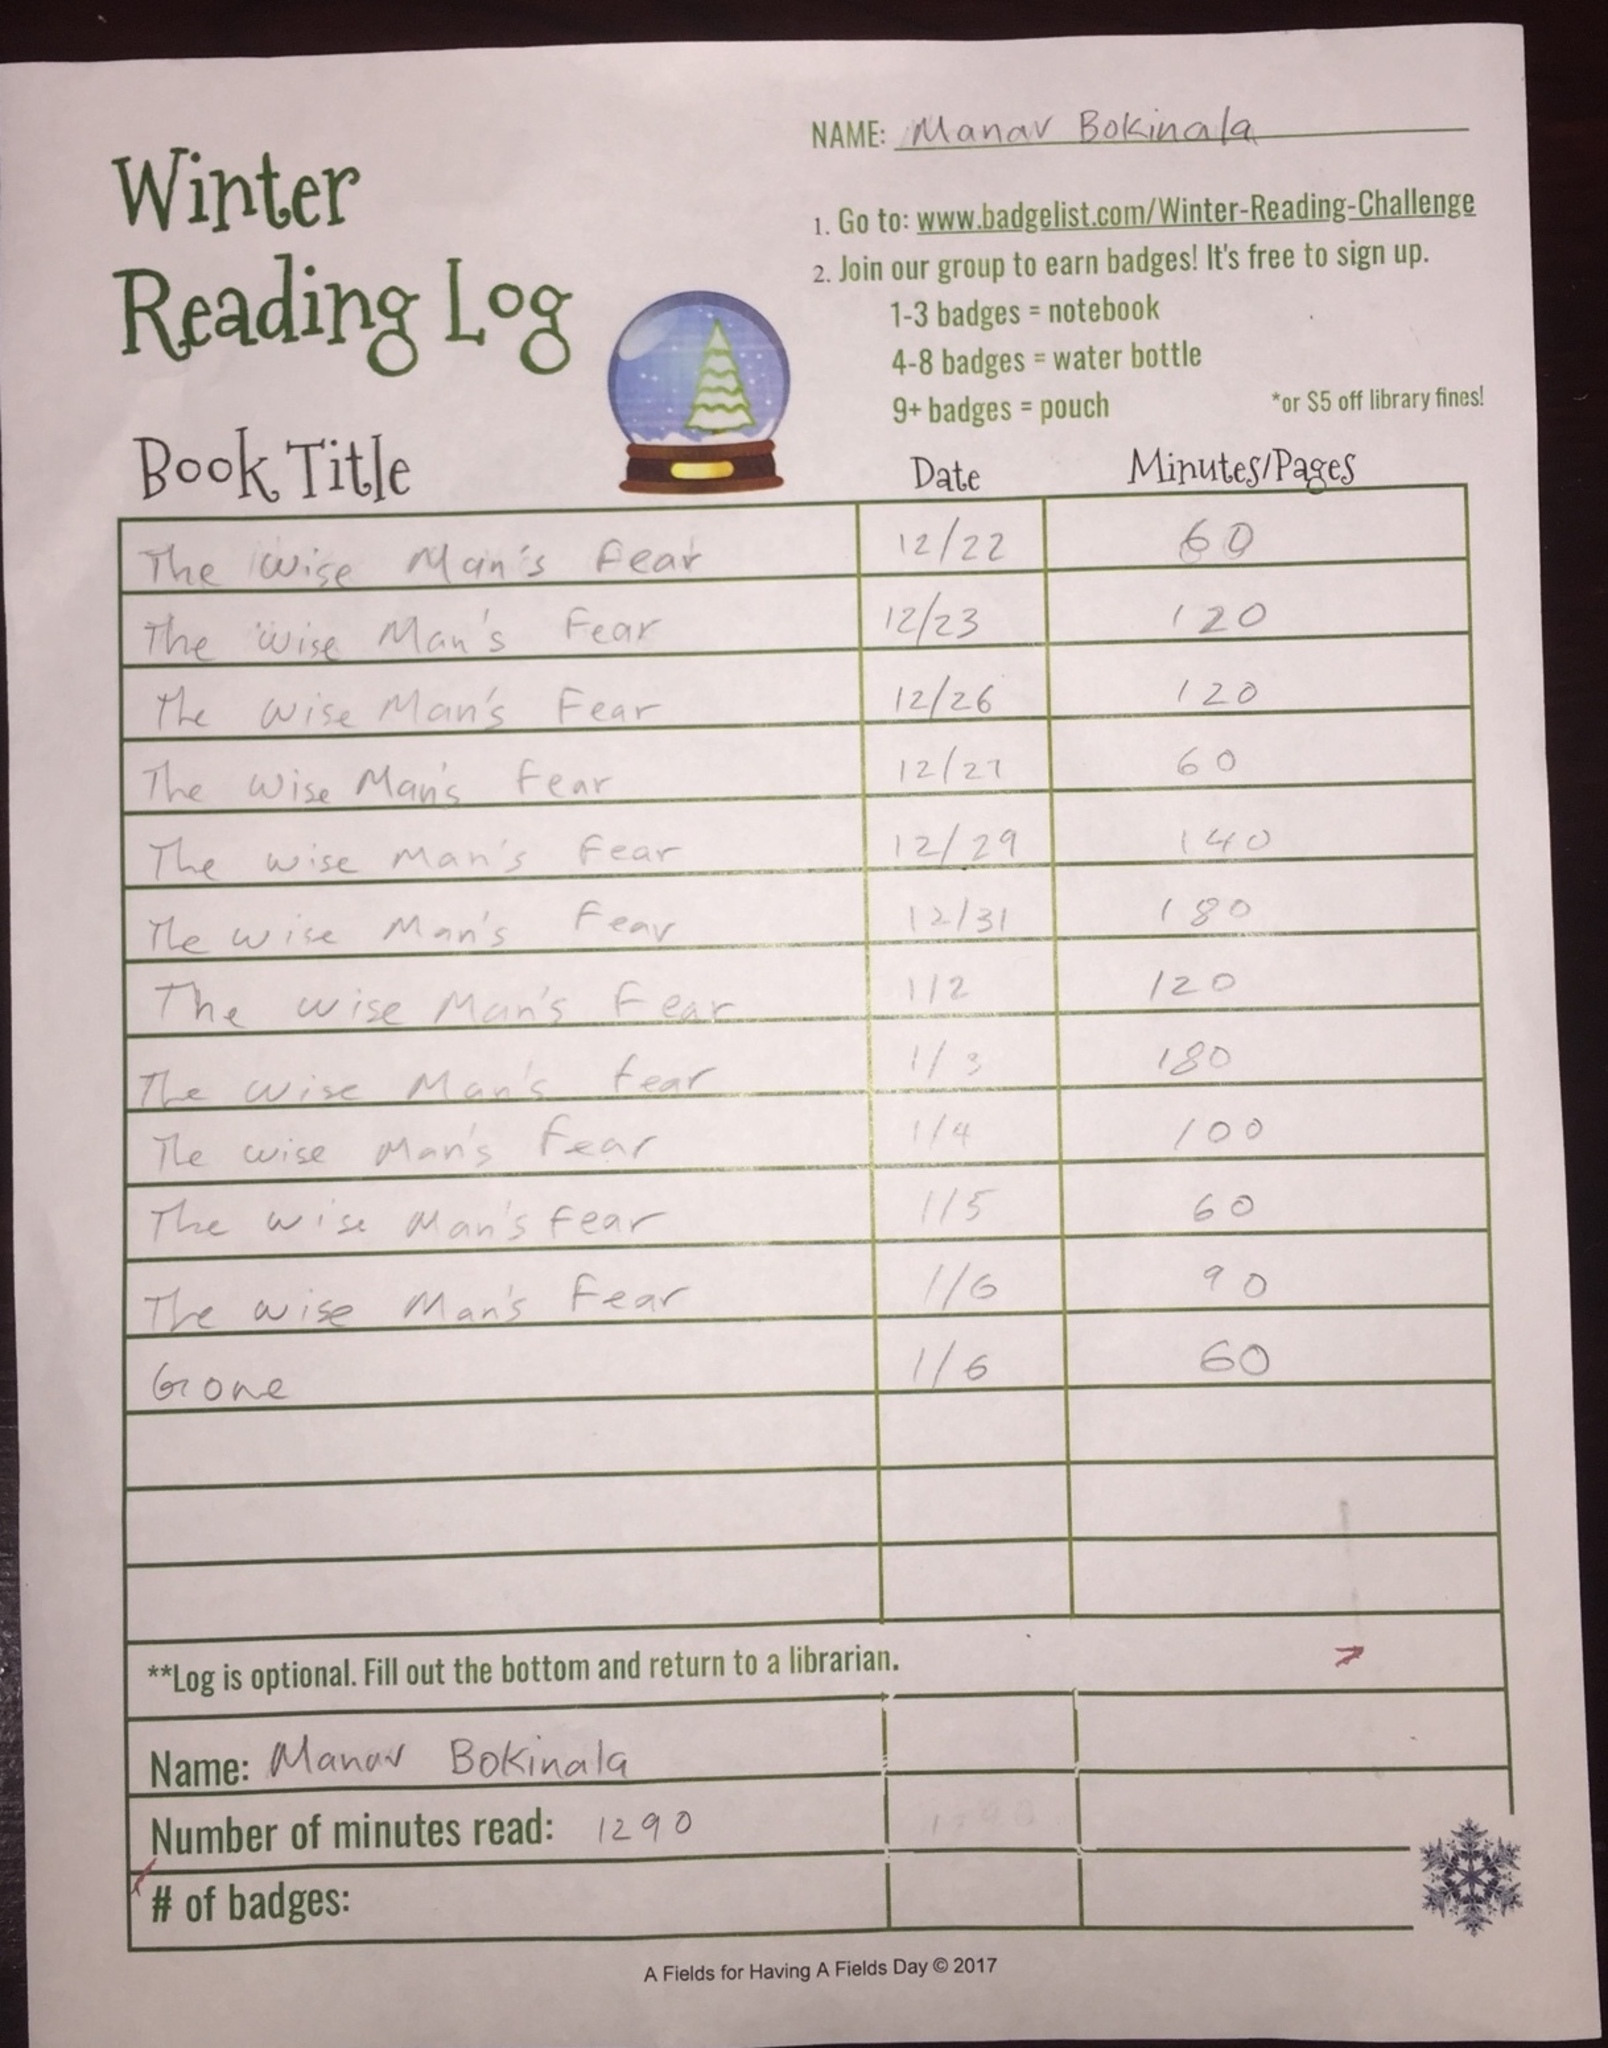 NAME: Manav Bokinala
Winter
Reading Log
1. Go to: www.badgelist.com/Winter-Reading-Challenge
2. Join our group to earn badges! It's free to sign up.
1-3 badges = notebook
4-8 badges = water bottle
9+ badges = pouch *or $5 off library fines!
Book Title Date Minutes/Pages
The Wise Man's Fear 12/22 60
The Wise Man's Fear 12/23 120
The Wise Man's Fear 12/26 120
The Wise Man's Fear 12/27 60
The Wise Man's Fear 12/29 140
The Wise Man's Fear 12/31 180
The Wise Man's Fear 1/2 120
The Wise Man's Fear 1/3 180
The Wise Man's Fear 1/4 100
The Wise Man's Fear 1/5 60
The Wise Man's Fear 1/6 90
Gone 1/6 60
**Log is optional. Fill out the bottom and return to a librarian.
Name: Manav Bokinala
Number of minutes read: 1290
# of badges:
A Fields for Having A Fields Day © 2017